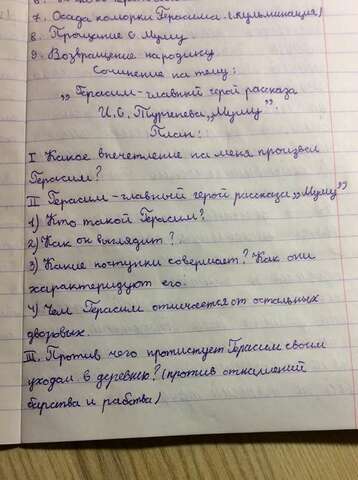 7. Осада каморки Герасима. (кульминация)
8. Прощание с Муму.
9. Возвращение на родину.
Сочинение на тему:
„Герасим-главный герой рассказа
И. С. Тургенева „Муму".
План:
I Какое впечатление на меня произвёл
Герасим?
II Герасим-главный герой рассказа „Муму"
1) Кто такой Герасим?
2) Как он выглядит?
3) Какие поступки совершает? Как они
характеризуют его.
4) Чем Герасим отличается от остальных
дворовых.
III. Против чего протистует Герасим своим
уходом в деревню? (против отношений
барства и рабства)